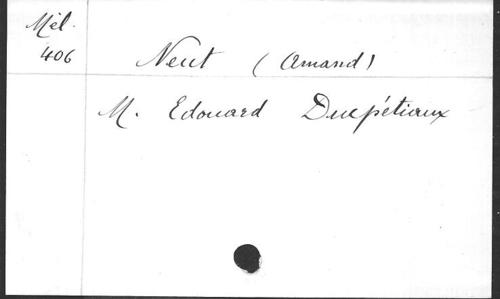 Mél.
406
Neut (Amand)
M. Edouard Ducpétiaux